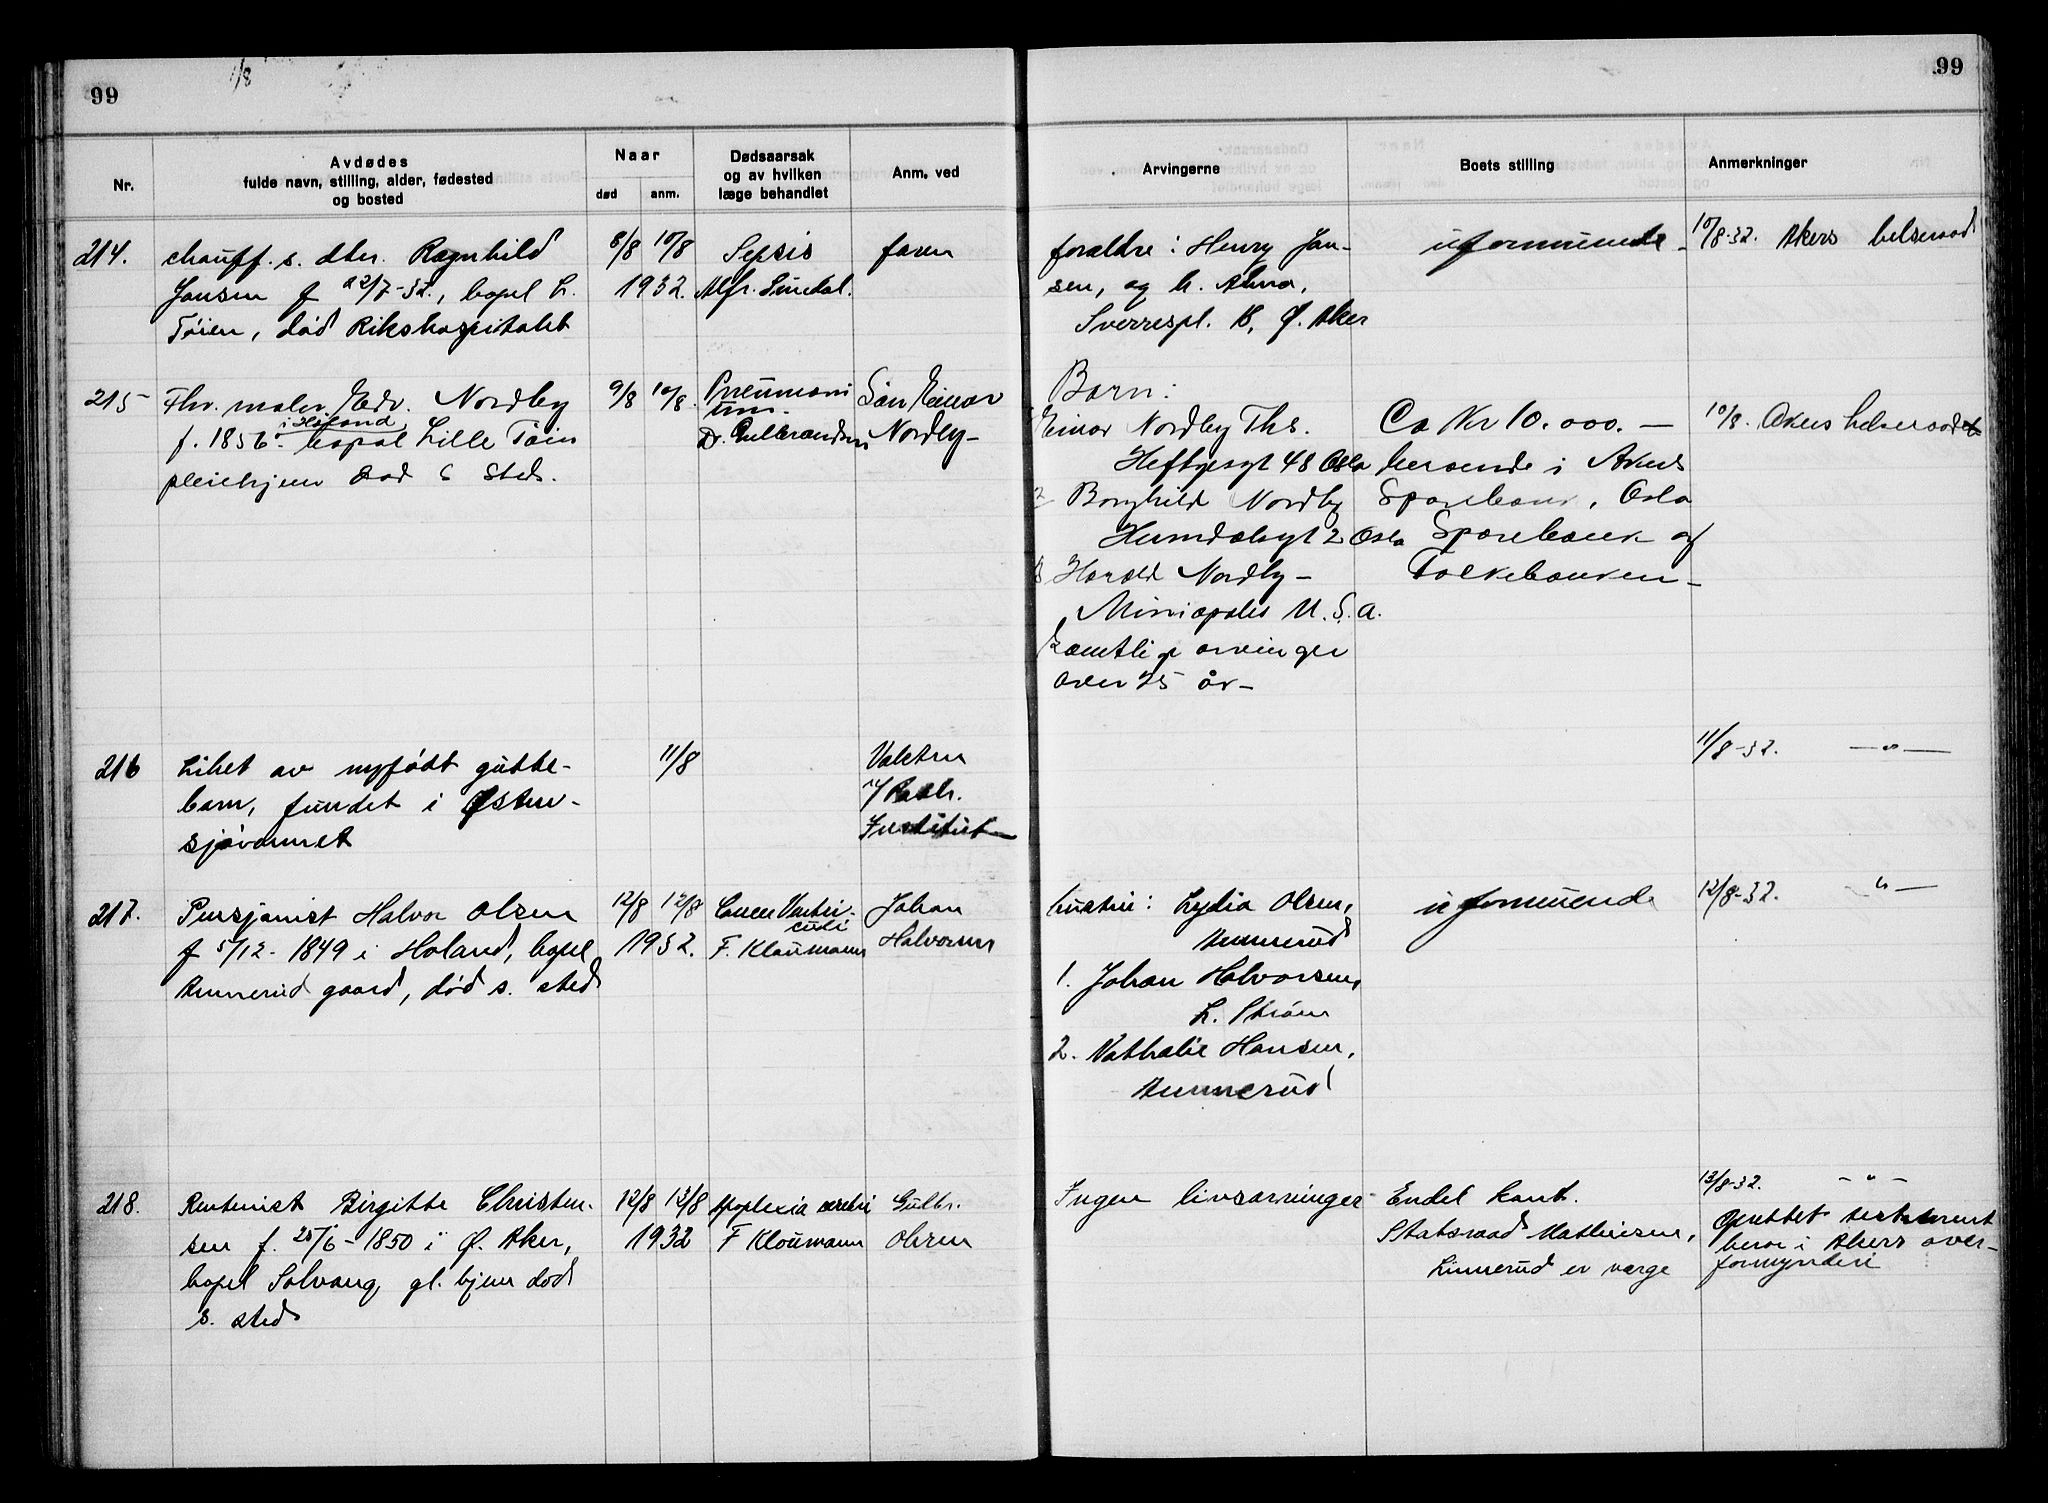 99
1/8
99
Nr.
Avdødes
fulde navn, stilling, alder, fødested
og bosted
Naar
død
anm.
Dødsaarsak
og av hvilken
læge behandlet
Anm. ved
Arvingerne
Boets stilling
Anmerkninger
214.
chauff. s. dtr. Ragnhild
Jansen f 22/7-32., bopel L.
Tøien, død Rikshospitalet
8/8 10/8
1932.
Sepsis
Alfr. Sundal.
faren
foreldre: Henry Jan-
sen, og h. Alma,
Sverrespl. 18, Ø. Aker
uformuende
10/8-32. Akers helseraad
215
Fhv. maler Edv. Nordby
i Høland
f. 1856 bopæl Lille Tøien
pleiehjem død s steds.
9/8 10/8
Pneumoni
Dr. Gulbrandsen
Søn Einar
Nordby
Barn:
Einar Nordby Ths.
Heftyesgt 48 Oslo
2 Borghild Nordby
Hurndalsgt 2 Oslo
3 Harald Nordby
Miniapolis U.S.A.
Samtlige arvinger
over 25 år
Ca Kr 10.000.
beroende i Akers
Sparebank, Oslo
Sparebank og
Folkebanken
10/8. Akers helseraad
216
Liket av nyfødt gutte-
barn, fundet i Østen-
sjøvannet
11/8
Vaktm
v/ Path.
Institut
11/8-32. — " —
217.
Pensjonist Halvor Olsen
f 5/12-1849 i Høland, bopel
Ammerud gaard, død s. sted
12/8 12/8
1932.
Cancer Ventri-
culi
F. Kloumann
Johan
Halvorsen
hustru: Lydia Olsen,
Ammerud
1. Johan Halvorsen,
L. Strøm
2. Nathalie Hansen,
Ammerud
uformuende
12/8-32. — " —
218.
Rentenist Birgitte Christen-
sen f. 25/6-1850 i Ø. Aker,
bopel Solvang gl. hjem død
s. sted
12/8 13/8
1932
Apoplexia cerebri
F Kloumann
Gulbr.
Olsen
Ingen livsarvinger
Endel kont.
Statsraad Mathiesen,
Linnerud er verge
13/8-32. — " —
Oprettet testament
beror i Akers over-
formynderi